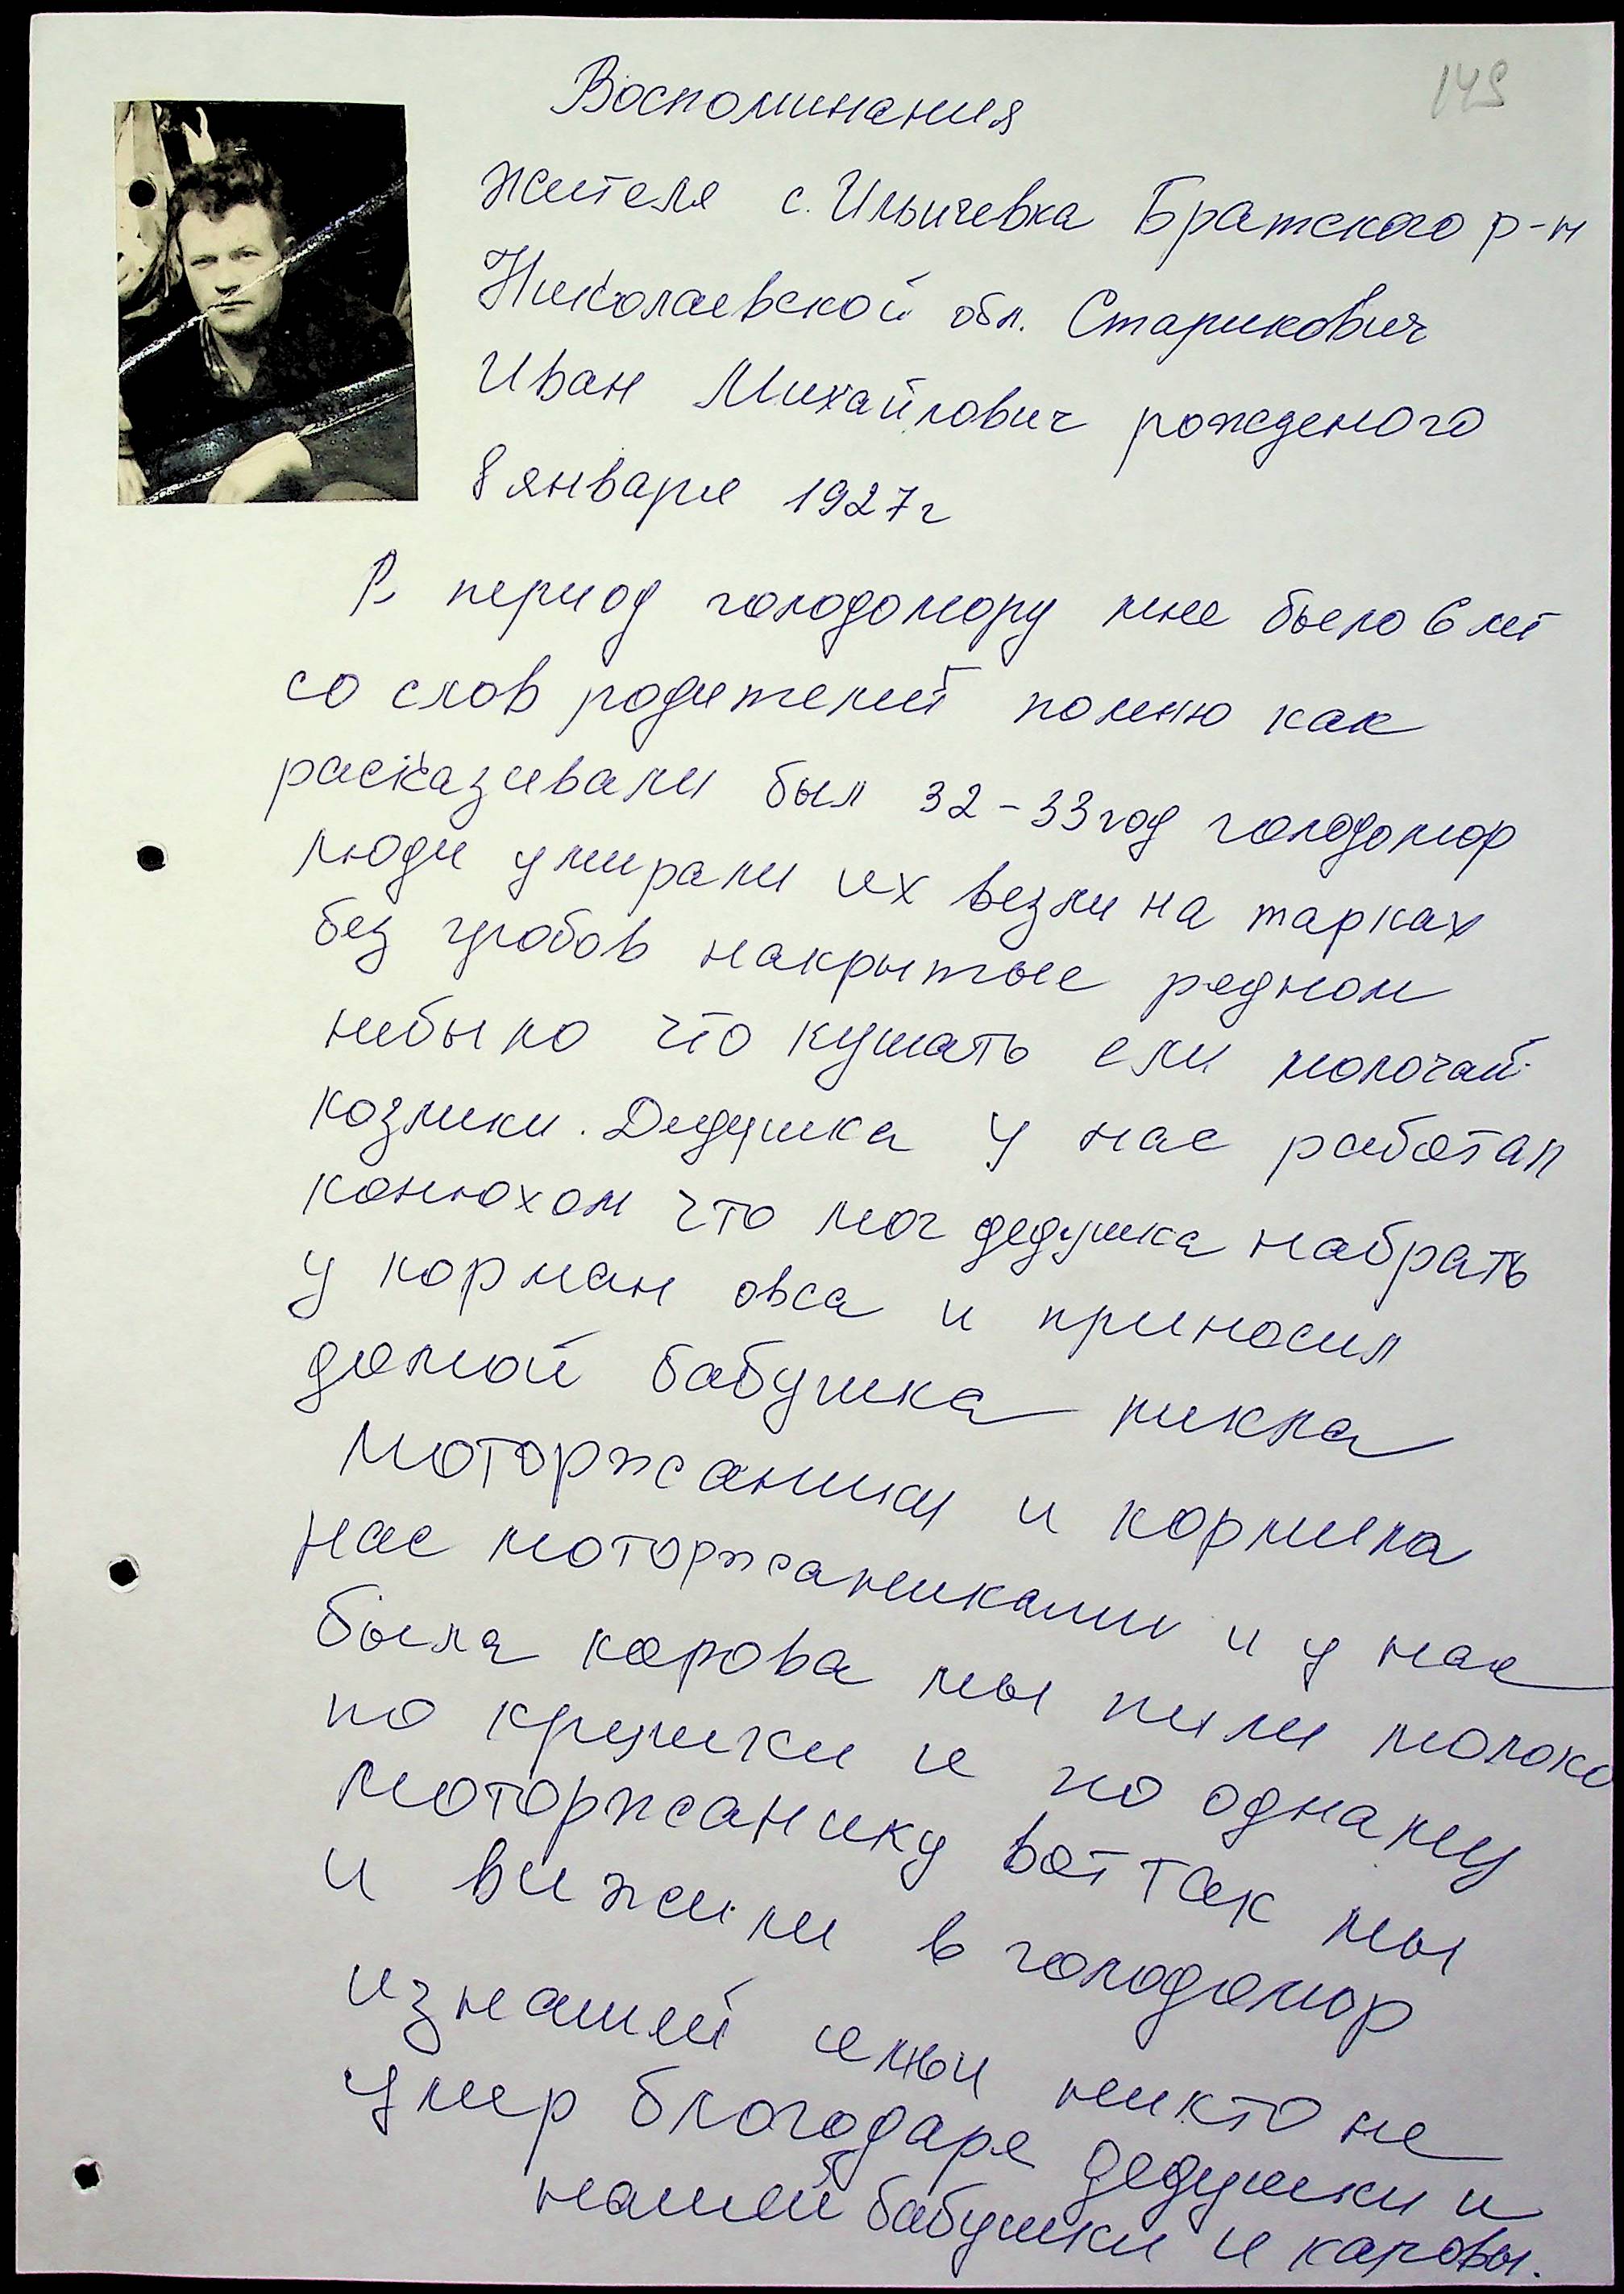 149
Воспоминания
жителя с. Ильичевка Братского р-н
Николаевской обл. Старикович
Иван Михайлович рожденого
8 января 1927г
В период голодомору мне было 6 лет
со слов родителей помню как
расказивали был 32-33 год голодомор
люди умирали их везли на тарках
без гробов накрытые рядном
небыло что кушать ели молочай
козлики. Дедушка у нас работал
конюхом что мог дедушка набрать
у корман овса и приносил
домой бабушка пикла
моторжаники и кормила
нас моторжаниками и у нас
была корова мы пили молоко
по кружки и по однаму
моторжанику вот так мы
и вижили в голодомор
из нашей семьи никто не
умер благодаря дедушки и
нашей бабушки и каровы.